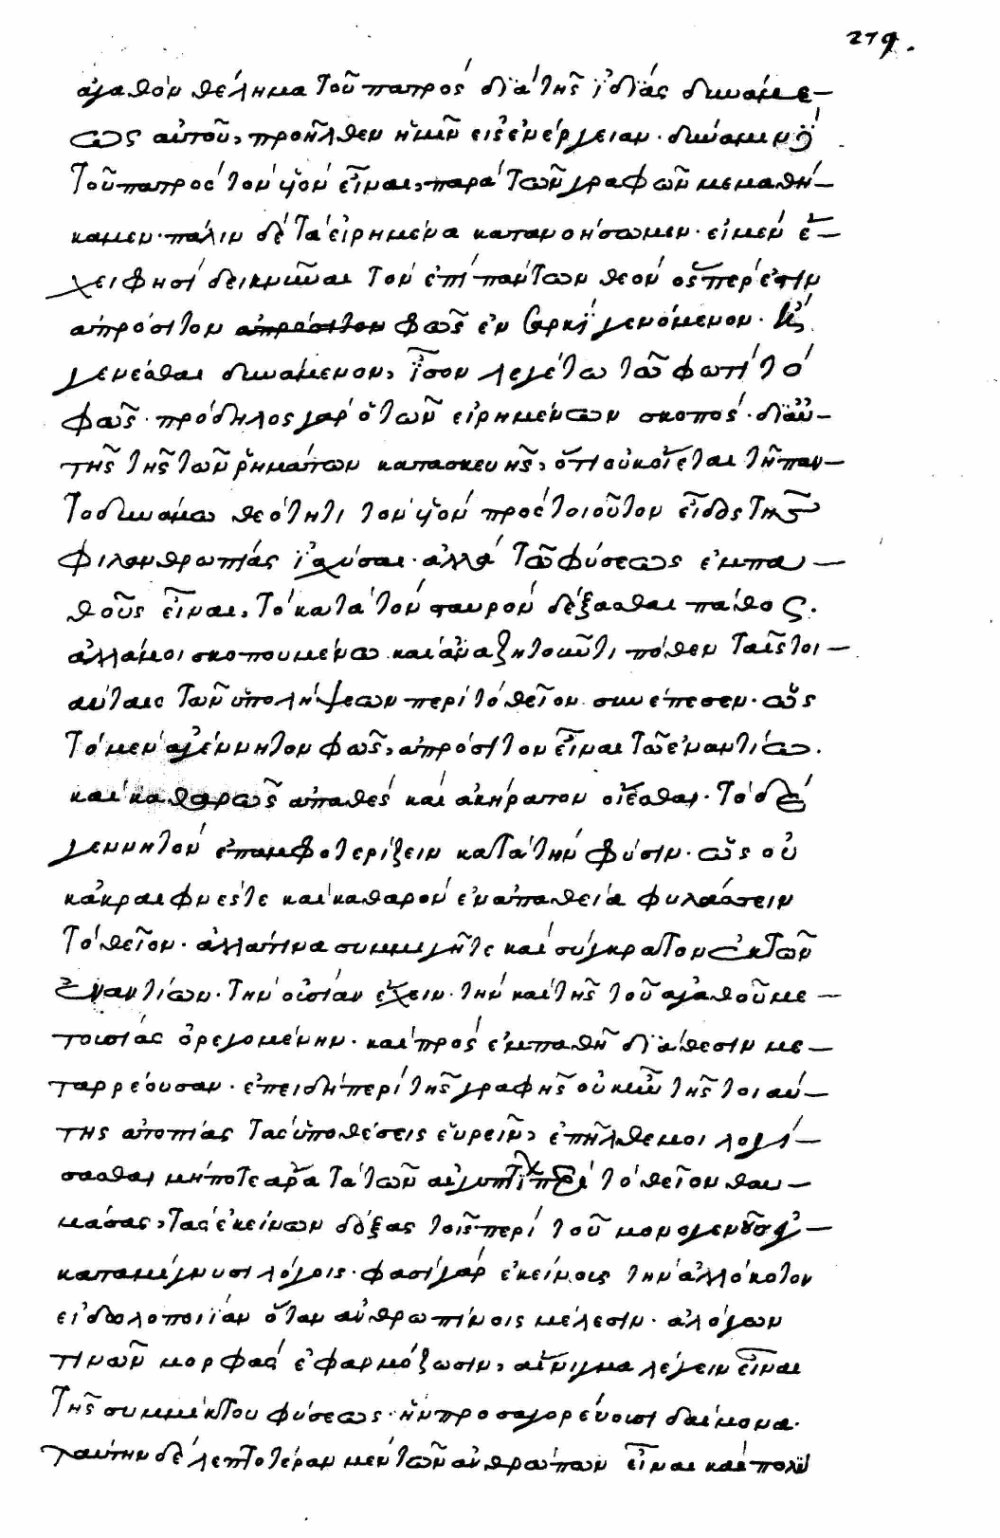 279.
ἀγαθὸν θέλημα τοῦ πατρὸς διὰ τῆς ἰδίας δυνάμε-
ως αὐτοῦ, προῆλθεν ἡμῖν εἰς ἐνέργειαν· δύναμιν δὲ
τοῦ πατρὸς τὸν υἱὸν εἶναι, παρὰ τῶν γραφῶν μεμαθή-
καμεν· πάλιν δὲ τὰ εἰρημένα κατανοήσωμεν· εἰ μὲν ἔ-
χει φησὶ δεικνύναι τὸν ἐπὶ πάντων θεὸν ὅσπερ ἐστὶν
ἀπρόσιτον ἀπρόσιτον φῶς ἐν σαρκὶ γενόμενον· ἢ
γενέσθαι δυνάμενον, ἴσον λεγέτω τῶ φωτὶ τὸ
φῶς· πρόδηλος γὰρ ὁ τῶν εἰρημένων σκοπὸς· δι' αὐ-
τῆς τῆς τῶν ῥημάτων κατασκευῆς, ὅτι οὐκ οἴεται τῆ παν-
τοδυνάμω θεότητι τὸν υἱὸν πρὸς τοιοῦτον εἶδος τῆς
φιλανθρωπίας ἰσχύσαι· ἀλλὰ τῶ φύσεως ἐμπα-
θοῦς εἶναι, τὸ κατὰ τὸν σταυρὸν δέξασθαι πάθος.
ἀλλά μοι σκοπουμένω καὶ ἀναζητοῦντι πόθεν ταῖς τοι-
αύταις τῶν ὑπολήψεων περὶ τὸ θεῖον συνέπεσεν· ὡς
τὸ μὲν ἀγέννητον φῶς, ἀπρόσιτον εἶναι τῶ ἐναντίω.
καὶ καθαρῶς ἀπαθὲς καὶ ἀκήρατον οἴεσθαι· τὸ δὲ
γεννητὸν ἐπαμφοτερίζειν κατὰ τὴν φύσιν· ὡς οὐ
κἀκραιφνές τε καὶ καθαρὸν ἐν ἀπαθεία φυλάσσειν
τὸ θεῖον· ἀλλά τινα συμμιγῆ τε καὶ σύγκρατον ἐκ τῶν
ἐναντίων· τὴν οὐσίαν ἔχειν· τὴν καὶ τῆς τοῦ ἀγαθοῦ με-
τουσίας ὀρεγομένην· καὶ πρὸς ἐμπαθῆ διάθεσιν με-
ταρρέουσαν· ἐπειδὴ περὶ τῆς γραφῆς οὐκ ἦν τῆς τοιαύ-
της ἀτοπίας τὰς ὑποθέσεις εὑρεῖν, ἐπῆλθέ μοι λογί-
σασθαι μήποτε ἆρα τὰ τῶν αἰγυπτίων περὶ τὸ θεῖον θαυ-
μάσας, τὰς ἐκείνων δόξας τοῖς περὶ τοῦ μονογενοῦς
καταμίγνυσι λόγοις· φασὶ γὰρ ἐκείνοις τὴν ἀλλόκοτον
εἰδωλοποιίαν ὅταν ἀνθρωπίνοις μέλεσιν· ἀλόγων
τινῶν μορφὰς ἐφαρμόζωσιν, αἴνιγμα λέγειν εἶναι
τῆς συμμίκτου φύσεως· ἣν προσαγορεύουσι δαίμονα·
ταύτην δὲ λεπτοτέραν μὲν τῶν ἀνθρώπων εἶναι καὶ πολὺ